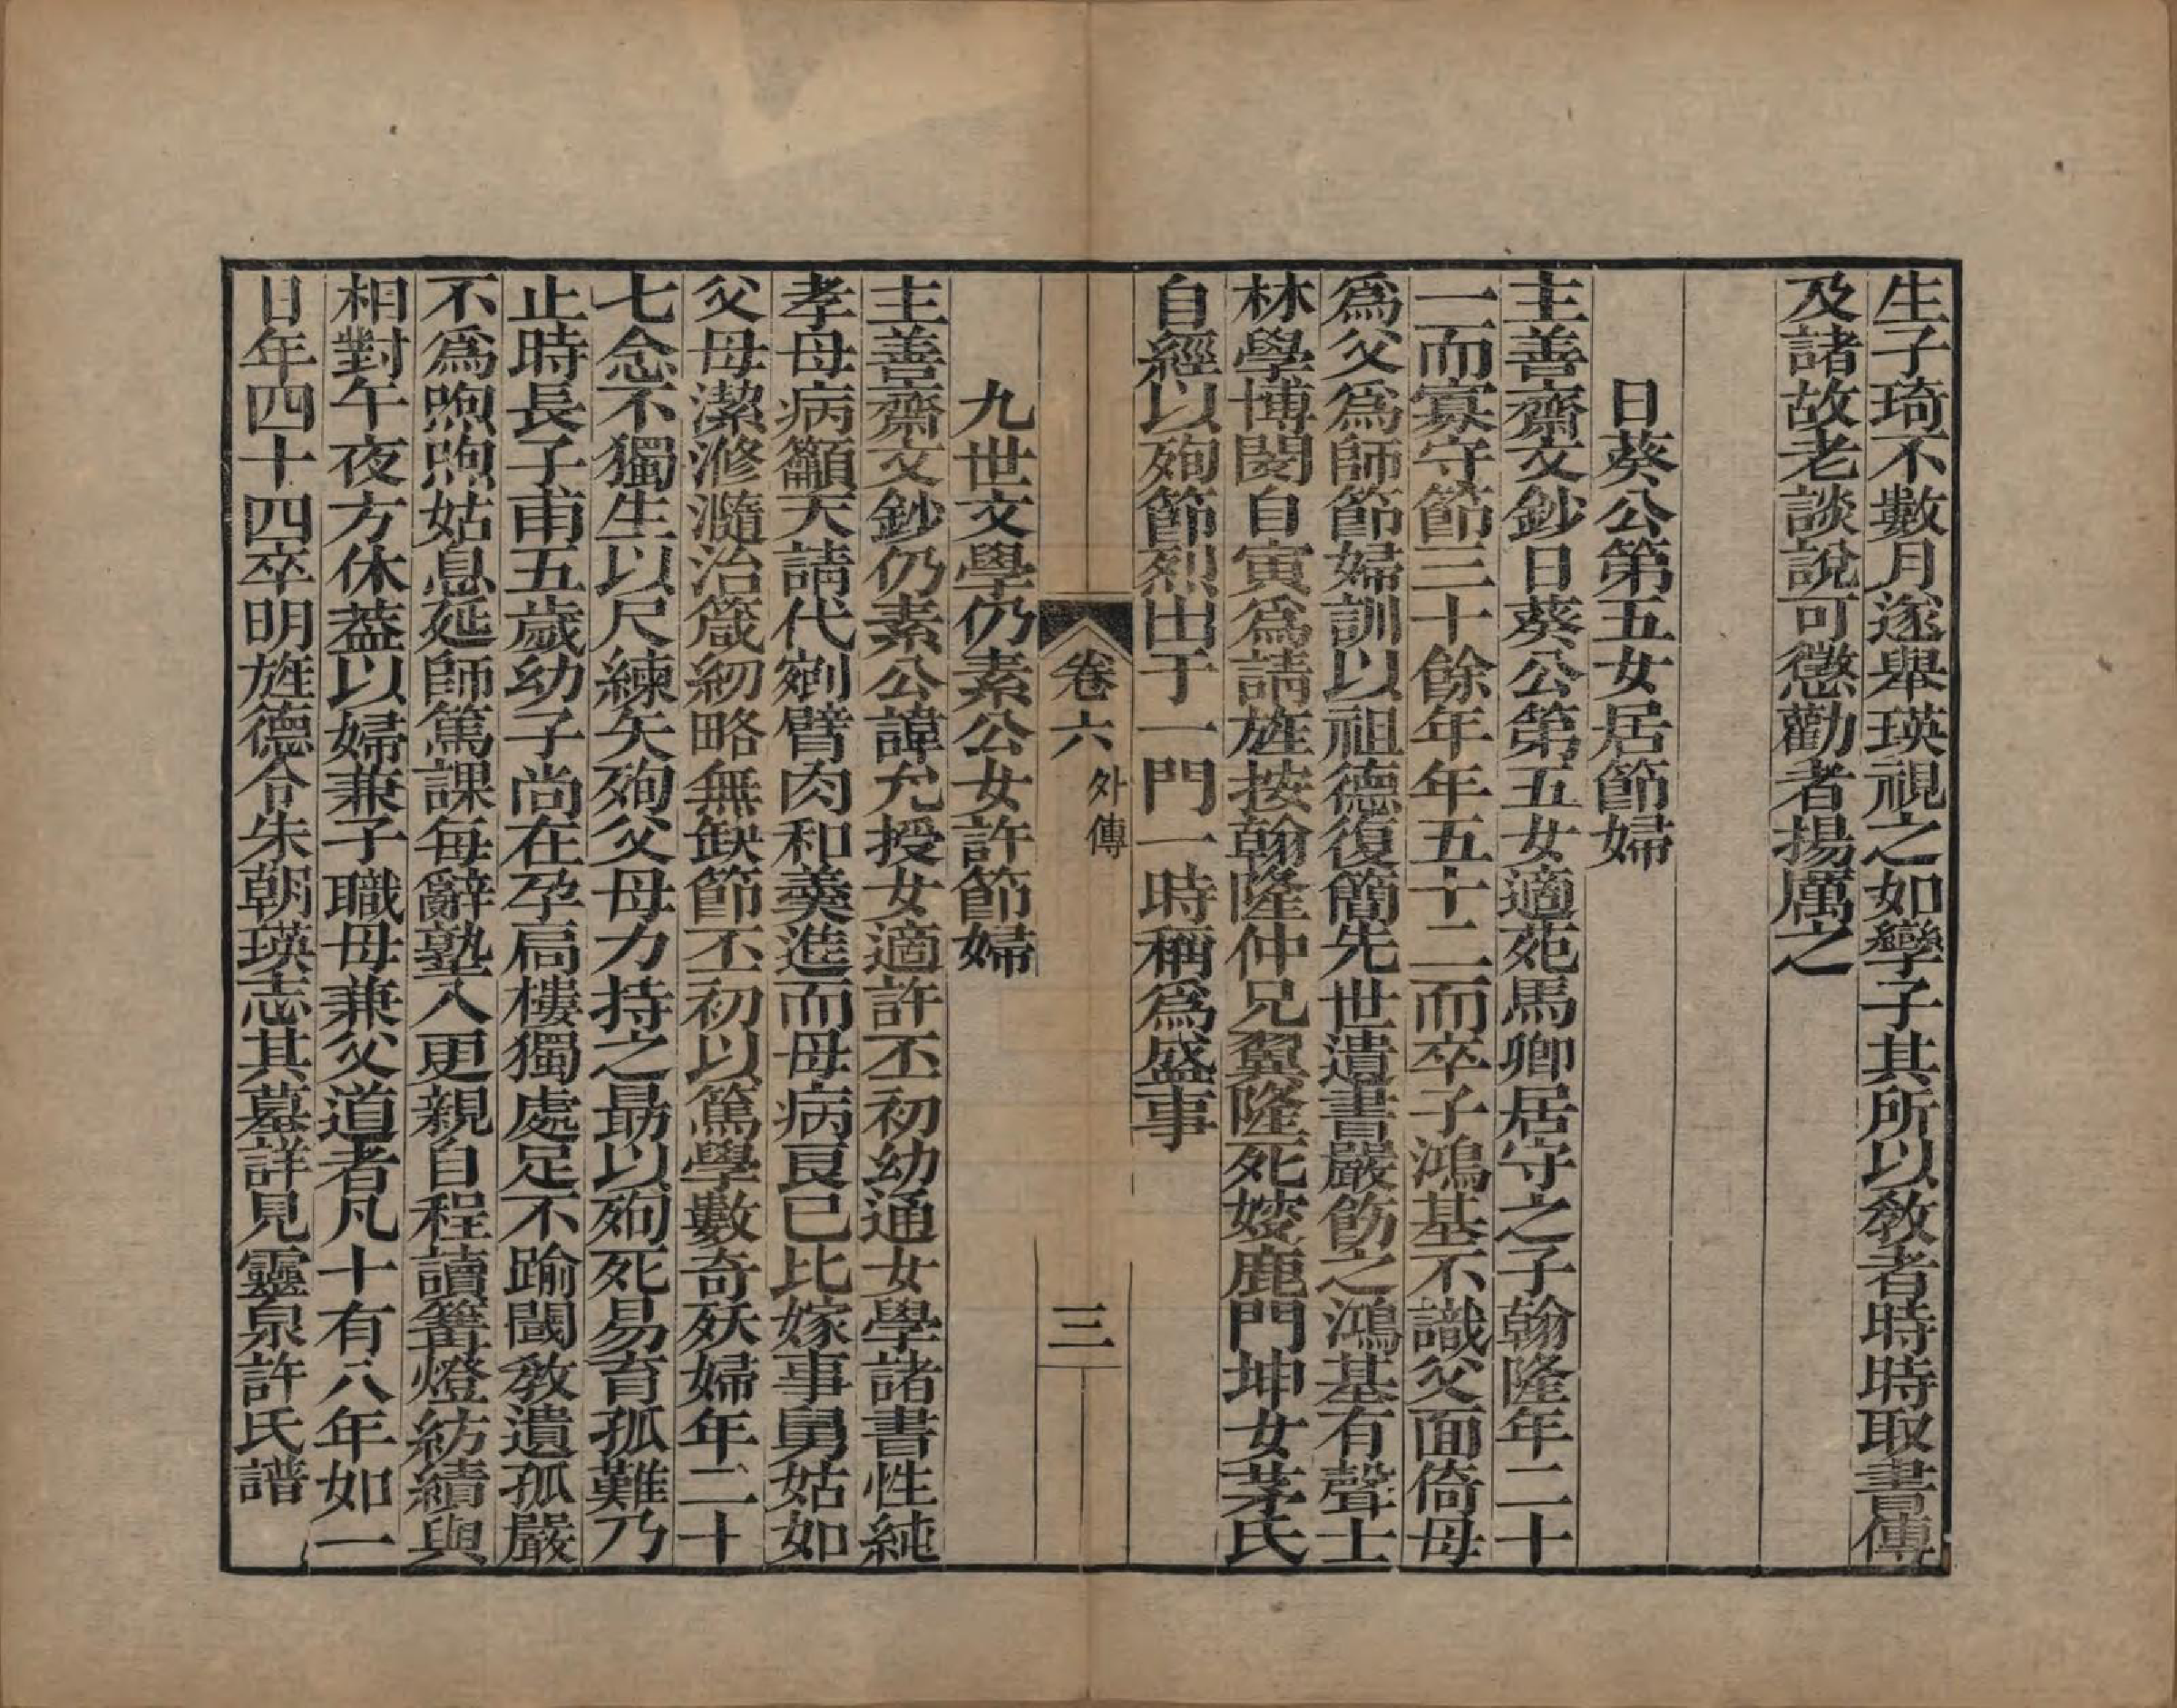 生子琦不數月遂舉瑛視之如孿子其所以敎者時時取書傳
及諸故老談說可懲勸者揚厲之
日葵公第五女居節婦
主善齋文鈔日葵公第五女適苑馬卿居守之子翰隆年二十
一而寡守節三十餘年年五十二而卒子鴻基不識父面倚母
爲父爲師節婦訓以祖德復簡先世遺書嚴飭之鴻基有聲士
林學博閔自寅爲請旌按翰隆仲兄翼隆死婈鹿門坤女茅氏
自經以殉節烈出于一門一時稱爲盛事
卷六 外傳 三
九世文學仍素公女許節婦
主善齋文鈔仍素公諱允授女適許丕初幼通女學諸書性純
孝母病籲天請代剜臂肉和羹進而母病良已比嫁事舅姑如
父母潔滫瀡治箴紉略無缺節丕初以篤學數奇殀婦年二十
七念不獨生以尺練矢殉父母力持之勗以殉死易育孤難乃
止時長子甫五歲幼子尚在孕扃樓獨處足不踰閾敎遺孤嚴
不爲煦煦姑息延師篤課每辭塾入更親自程讀篝燈紡績與
相對午夜方休蓋以婦兼子職母兼父道者凡十有八年如一
日年四十四卒明旌德令朱朝瑛志其墓詳見靈泉許氏譜